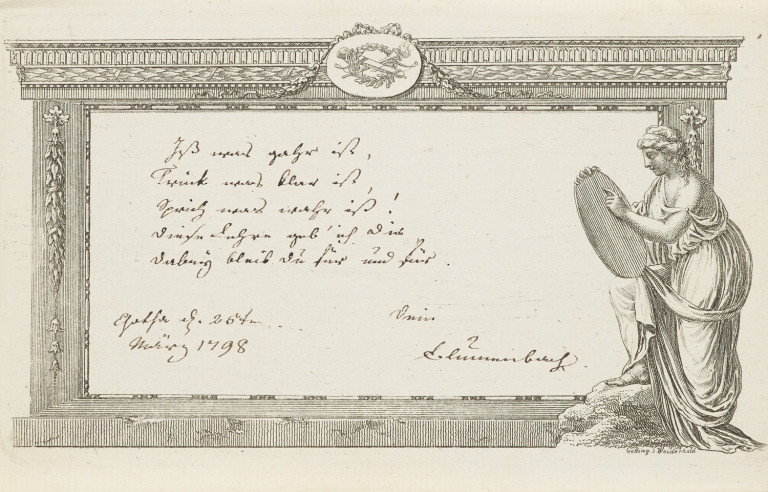 Iß was gahr ist,
Trink was klar ist,
Sprich was wahr ist!
Diese Lehre geb' ich Dir
Dabey bleib Du für und für.
Gotha d. 26ten
März 1798
Dein
Blumenbach.
Götting. b. Wiederhold